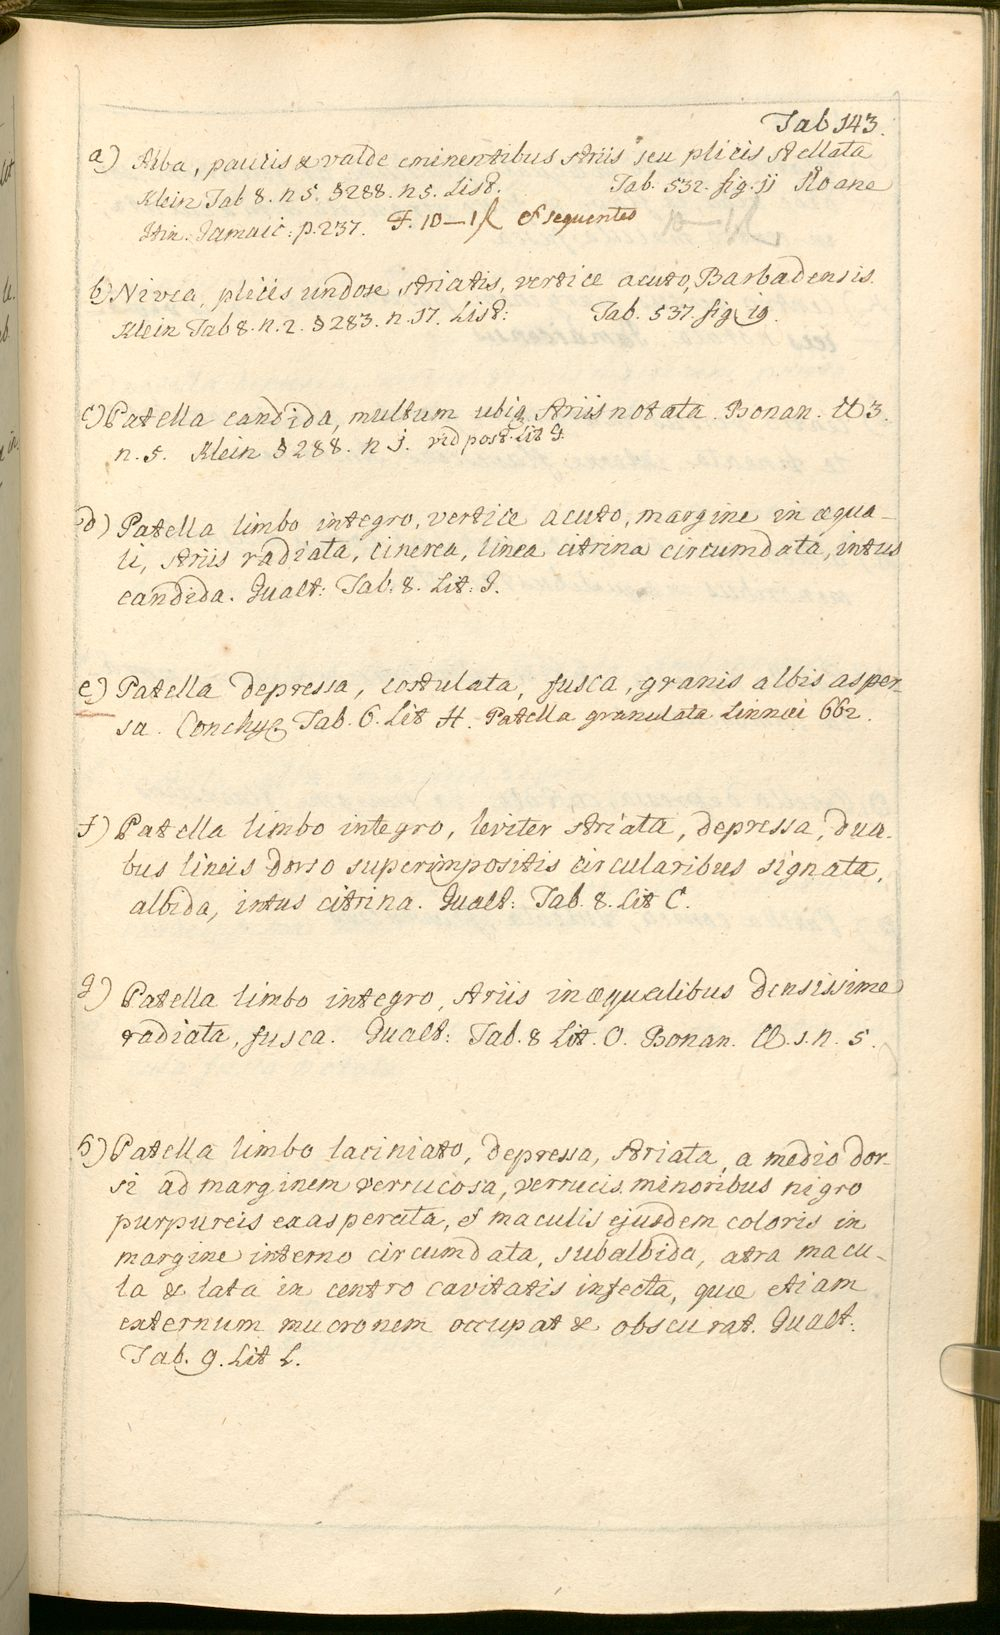 Tab 143.
a) Alba, paucis & valde eminentibus striis seu plicis stellata
Klein Tab 8. n 5. § 288. n 5. List. Tab. 532. fig. 11 Sloane
Itin. Jamaic: p. 237. F. 10—11 et sequentes
b) Nivea, plicis undose striatis, vertice acuto, Barbadensis.
Klein Tab 8. n. 2. § 283. n. 17. List: Tab. 537. fig. 19.
c) Patella candida, multum ubiq striis notata. Bonan. Cl 3.
n. 5. Klein § 288. n 1. vid post. Lit G.
d) Patella limbo integro, vertice acuto, margine in æqua-
li, striis radiata, cinerea, linea citrina circumdata, intus
candida. Gualt: Tab. 8. Lit: I.
e) Patella depressa, costulata, fusca, granis albis asper-
sa. Conchyl Tab. 6. Lit H. Patella granulata Linnæi 662.
f) Patella limbo integro, leviter striata, depressa, dua-
bus lineis dorso superimpositis circularibus signata,
albida, intus citrina. Gualt: Tab. 8. Lit C.
g) Patella limbo integro, striis inæqualibus densissime
radiata, fusca. Gualt: Tab. 8 Lit. O. Bonan. Cl. 1. n. 5.
h) Patella limbo laciniato, depressa, striata, a medio dor-
si ad marginem verrucosa, verrucis minoribus nigro
purpureis exasperata, et maculis ejusdem coloris in
margine interno circumdata, subalbida, atra macu-
la & lata in centro cavitatis infecta, quæ etiam
externum mucronem occupat & obscurat. Gualt:
Tab. 9. Lit L.